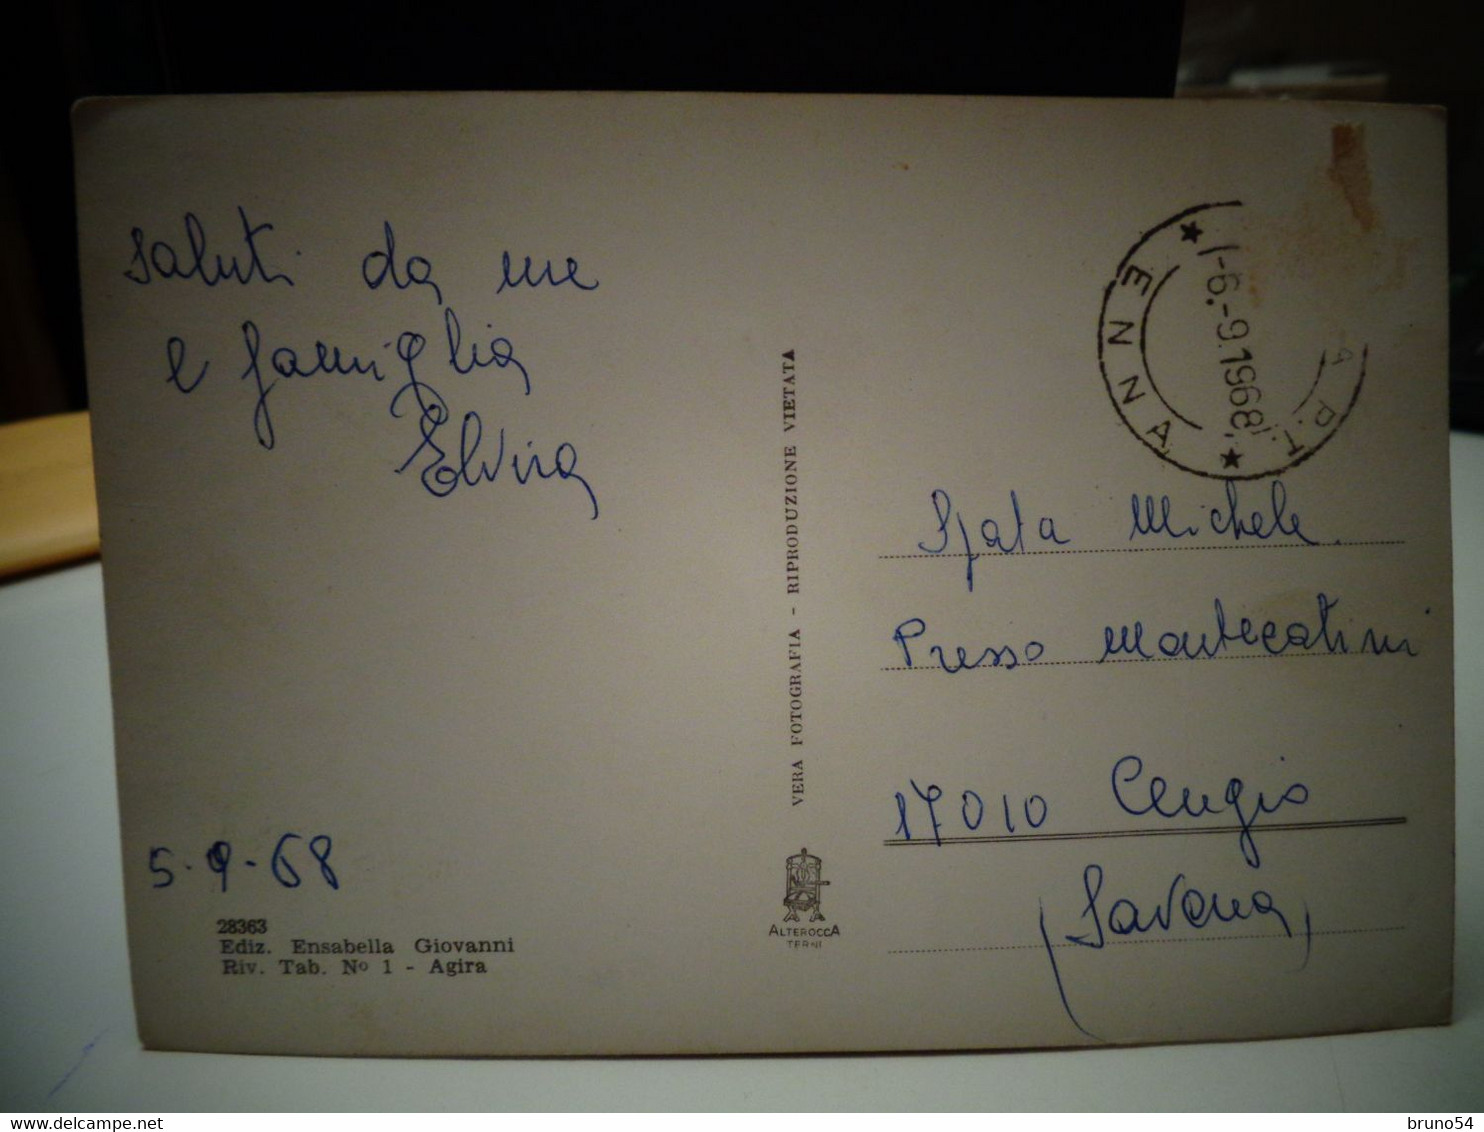 saluti da me
e famiglia
Elvira
5-9-68
28363
Ediz. Ensabella Giovanni
Riv. Tab. No 1 - Agira
VERA FOTOGRAFIA - RIPRODUZIONE VIETATA
ALTEROCCA
TERNI
ENNA
-6.-9.1968
P.T.
Spata Michele
Presso Montecatini
17010 Cengio
(Savona)
bruno54